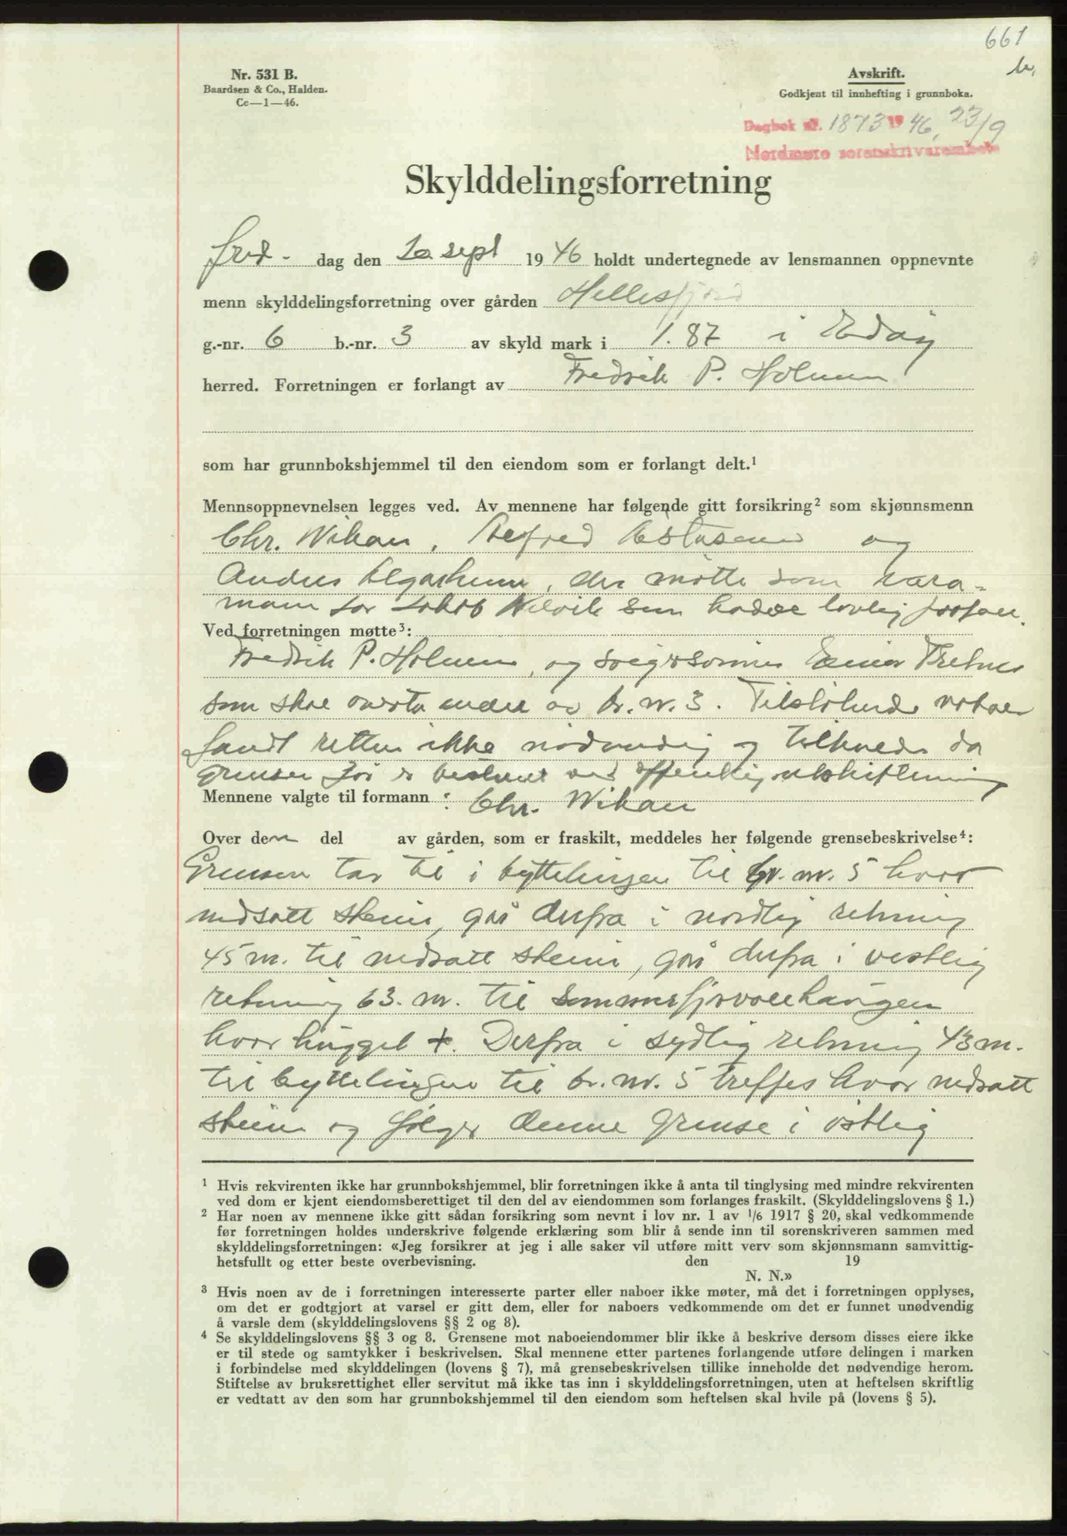 661
b.
Nr. 531 B.
Baardsen & Co., Halden.
Cc—1—46.
Avskrift.
Godkjent til innhefting i grunnboka.
Dagbok nr. 1873 1946, 23/9
Nordmøre sorenskriverembete
Skylddelingsforretning
fre- dag den 20 sept 1946 holdt undertegnede av lensmannen oppnevnte
menn skylddelingsforretning over gården Hellesfjord
g.-nr. 6 b.-nr. 3 av skyld mark i 1.87 i Edøy
herred. Forretningen er forlangt av Fredrik P. Holmen
som har grunnbokshjemmel til den eiendom som er forlangt delt.¹
Mennsoppnevnelsen legges ved. Av mennene har følgende gitt forsikring² som skjønnsmenn
Chr. Wikan, Alfred og
Anders der møtte som vara-
mann for Jakob som hadde lovlig forfall.
Ved forretningen møtte³:
Fredrik P. Holmen, og svigersønnen Einar
som skal overta andel av br. nr. 3. Tilstøtende naboer
fandt retten ikke nødvendig og tilkalde da
grensen før er bestemt ved offentlig utskiftning
Mennene valgte til formann : Chr. Wikan
Over den del av gården, som er fraskilt, meddeles her følgende grensebeskrivelse⁴:
Grensen tar til i byttelinjen til br. nr. 5 hvor
nedsatt stein, går derfra i nordlig retning
45 m. til nedsatt stein, går derfra i vestlig
retning 63. m. til
hvor hugget +. Derfra i sydlig retning 43 m.
til byttelinjen til br. nr. 5 treffes hvor nedsatt
stein og følger denne grense i østlig
¹ Hvis rekvirenten ikke har grunnbokshjemmel, blir forretningen ikke å anta til tinglysing med mindre rekvirenten
ved dom er kjent eiendomsberettiget til den del av eiendommen som forlanges fraskilt. (Skylddelingslovens § 1.)
² Har noen av mennene ikke gitt sådan forsikring som nevnt i lov nr. 1 av 1/6 1917 § 20, skal vedkommende
før forretningen holdes underskrive følgende erklæring som blir å sende inn til sorenskriveren sammen med
skylddelingsforretningen: «Jeg forsikrer at jeg i alle saker vil utføre mitt verv som skjønnsmann samvittig-
hetsfullt og etter beste overbevisning. den 19
N. N.»
³ Hvis noen av de i forretningen interesserte parter eller naboer ikke møter, må det i forretningen opplyses,
om det er godtgjort at varsel er gitt dem, eller for naboers vedkommende om det er funnet unødvendig
å varsle dem (skylddelingslovens §§ 2 og 8).
⁴ Se skylddelingslovens §§ 3 og 8. Grensene mot naboeiendommer blir ikke å beskrive dersom disses eiere ikke
er til stede og samtykker i beskrivelsen. Skal mennene etter partenes forlangende utføre delingen i marken
i forbindelse med skylddelingen (lovens § 7), må grensebeskrivelsen tillike inneholde det nødvendige herom.
Stiftelse av bruksrettighet eller servitut må ikke tas inn i skylddelingsforretningen, uten at heftelsen skriftlig
er vedtatt av den som har grunnbokshjemmel til den eiendom som heftelsen skal hvile på (lovens § 5).